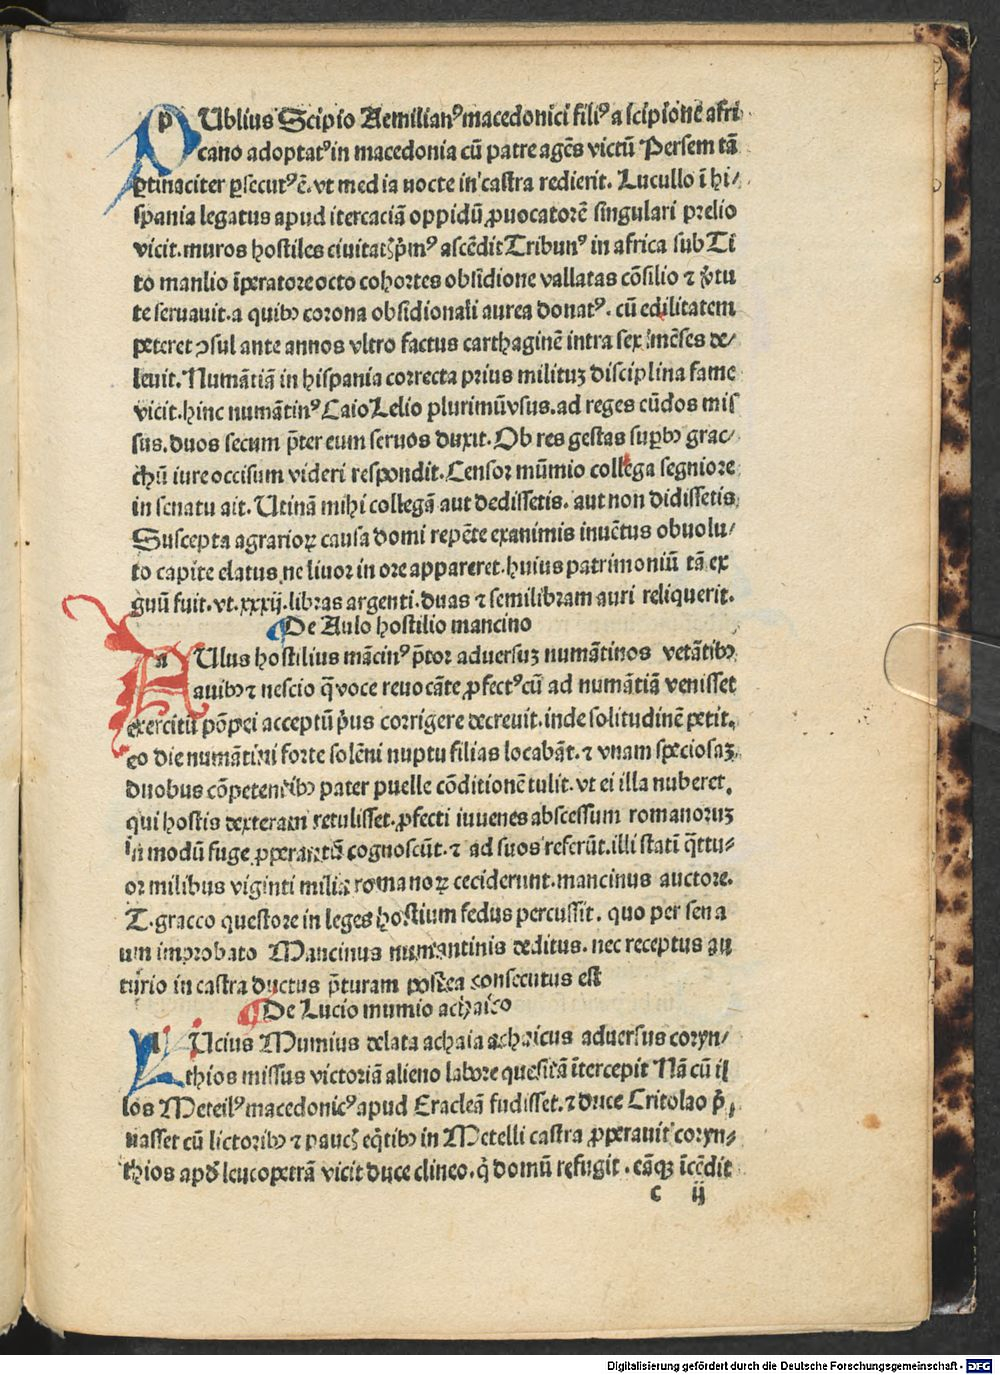 PUblius Scipio Aemilianꝰ macedonici filiꝰ a scipione afri
cano adoptatꝰ in macedonia cū patre agēs victū Persem tā
ꝑtinaciter ꝑsecutꝰ ē. vt media nocte in castra redierit. Lucullo ī hi/
spania legatus apud itercaciā oppidū ꝓuocatorē singulari prelio
vicit. muros hostiles ciuitatꝭ p̄mꝰ ascēdit Tribunꝰ in africa sub Ti
to manlio īperatore octo cohortes obsidione vallatas cōsilio ⁊ v̓tu
te seruauit. a quibꝰ corona obsidionali aurea donatꝰ. cū edilitatem
peteret ↄsul ante annos vltro factus carthaginē intra sex mēses de/
leuit. Numātiā in hispania correcta prius milituꝫ disciplina fame
vicit. hinc numātinꝰ Caio Lelio plurimū vsus. ad reges cūdos mis
sus. duos secum p̄ter eum seruos duxit. Ob res gestas suꝑbꝰ grac/
chū iure occisum videri respondit. Censor mūmio collega segniore
in senatu ait. Utinā mihi collegā aut dedissetis. aut non didissetis
Suscepta agrarioꝝ causa domi repēte exanimis inuētus obuolu/
to capite elatus ne liuor in ore appareret. huius patrimoniū tā ex
guū fuit. vt. xxxij. libras argenti. duas ⁊ semilibram auri reliquerit.
De Aulo hostilio mancino
AUlus hostilius mācinꝰ p̄tor aduersuꝫ numātinos vetātibꝰ
auibꝰ ⁊ nescio q̄ voce reuocāte ꝓfectꝰ cū ad numātiā venisset
exercitū pōpei acceptū p̓us corrigere decreuit. inde solitudinē petit.
eo die numātini forte solēni nuptu filias locabāt. ⁊ vnam speciosaꝫ
duobus cōpetentibꝰ pater puelle cōditionē tulit. vt ei illa nuberet.
qui hostis dexteram retulisset. ꝓfecti iuuenes abscessum romanoruꝫ
in modū fuge ꝓperantū cognoscūt. ⁊ ad suos referūt. illi statī q̄ttu/
or milibus viginti milia romanoꝝ ceciderunt. mancinus auctore.
T. gracco questore in leges hostium fedus percussit. quo per sena
um improbato Mancinus numantinis deditus. nec receptus au
turio in castra ductus p̄turam postea consecutus est
De Lucio mumio achaico
LUcius Mumius delata achaia achaicus aduersus coryn/
thios missus victoriā alieno labore quesitā ītercepit Nā cū il
los Meteilꝰ macedonicꝰ apud Eracleā fudisset. ⁊ duce Critolao p̓/
uasset cū lictoribꝰ ⁊ paucꝭ eq̄tibꝰ in Metelli castra ꝓperauit coryn/
thios apd̓ leucopetrā vicit duce clineo. q̓ domū refugit. eāqꝫ īcēdit
c ij
Digitalisierung gefördert durch die Deutsche Forschungsgemeinschaft - DFG